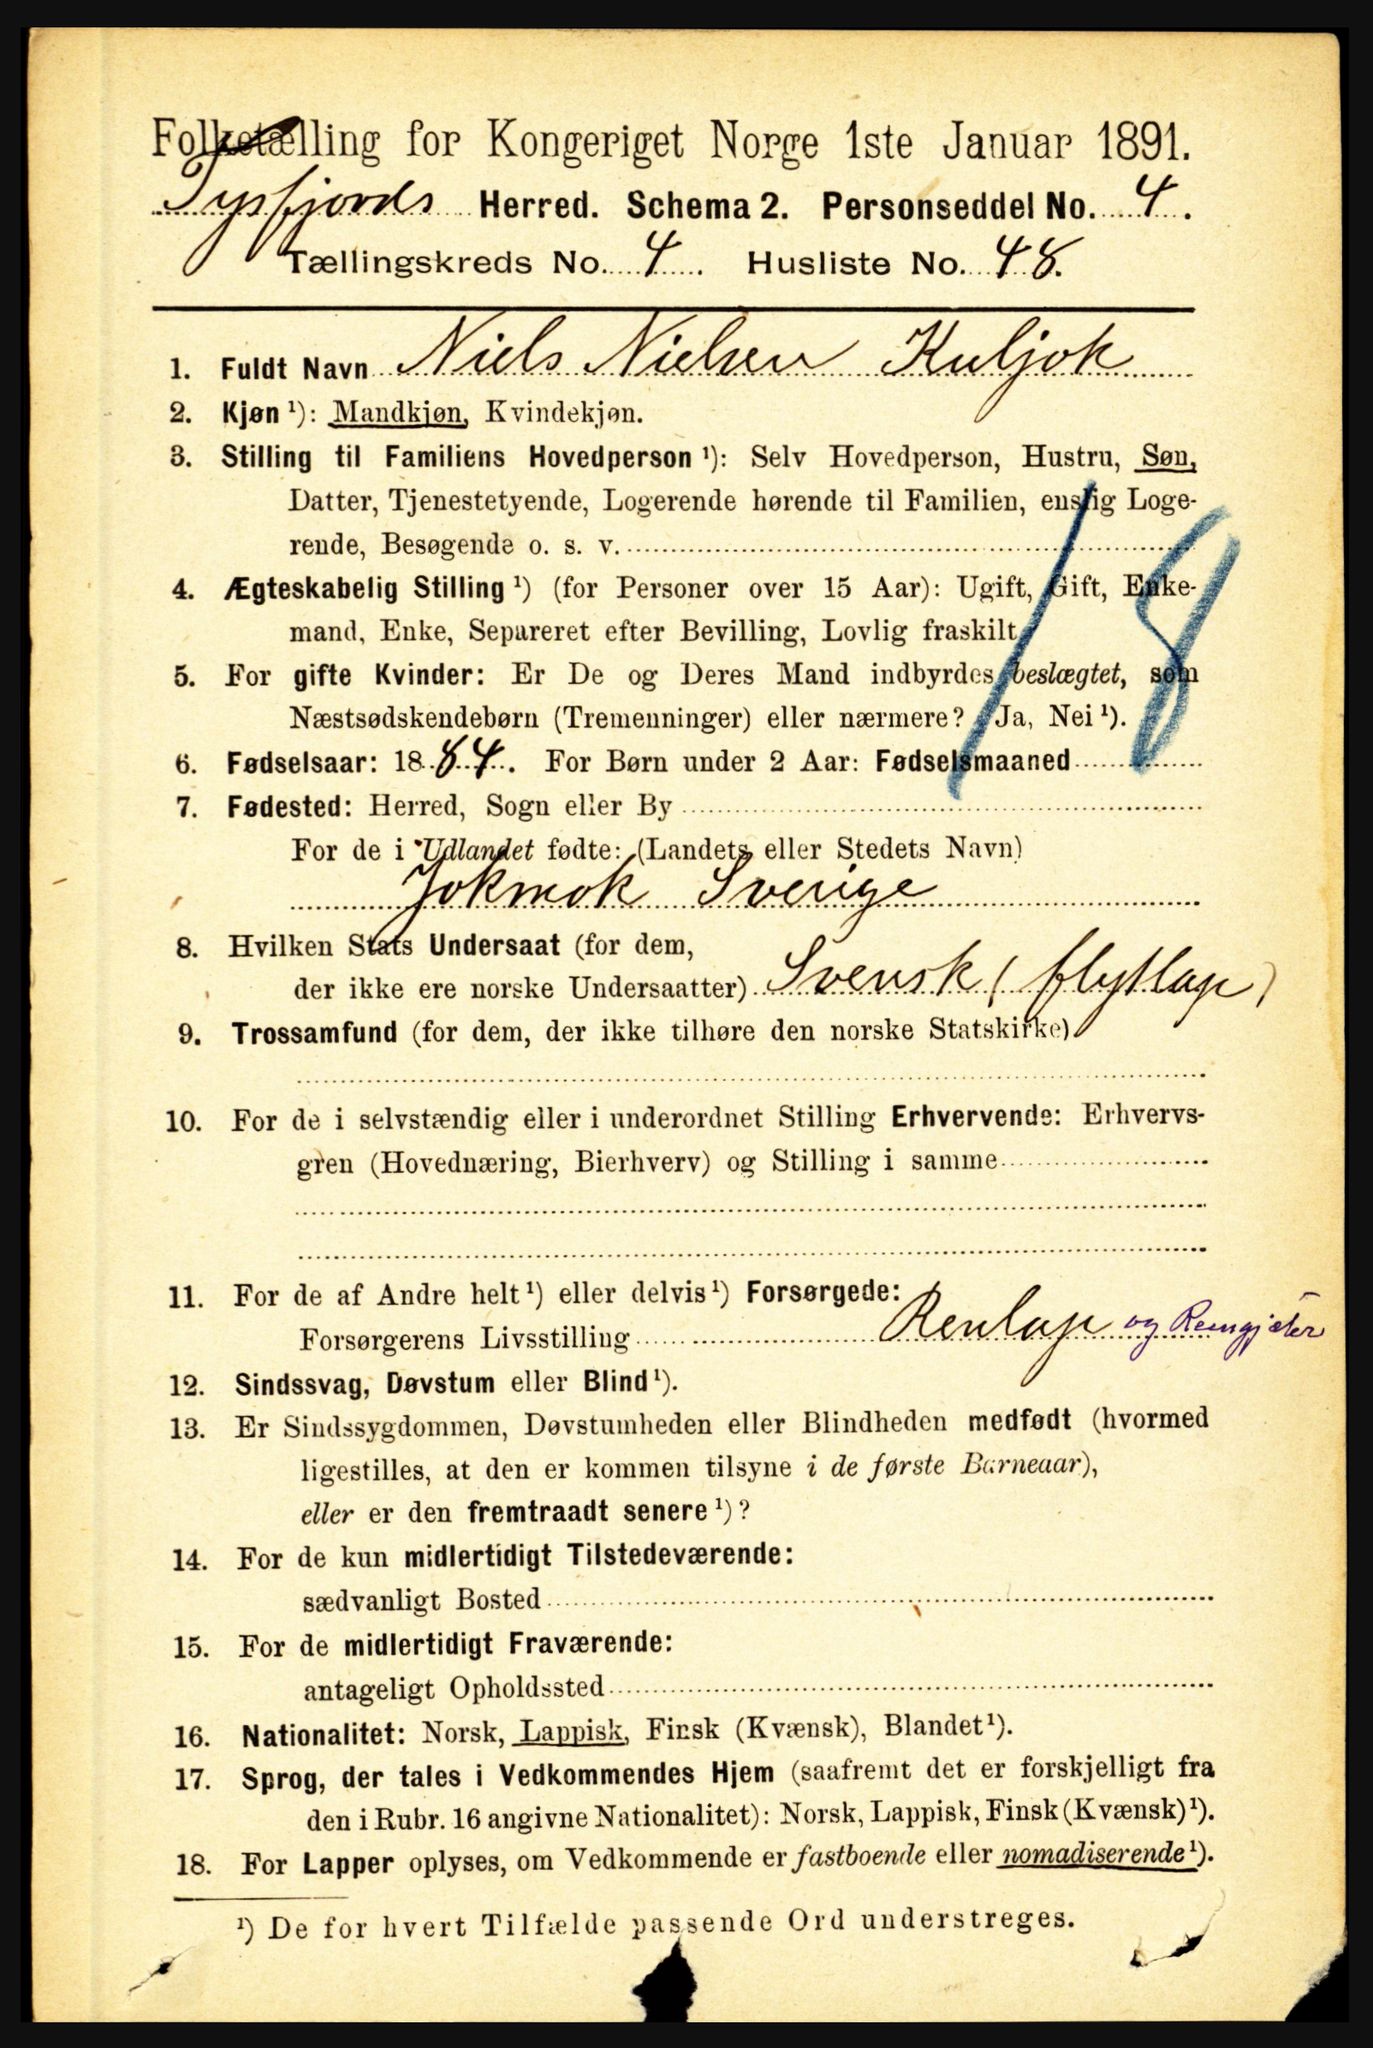 Folketælling for Kongeriget Norge 1ste Januar 1891.
Tysfjords Herred. Schema 2. Personseddel No. 4.
Tællingskreds No. 4. Husliste No. 48.
1. Fuldt Navn Niels Nielsen Kuljok
2. Kjøn ¹): Mandkjøn, Kvindekjøn.
3. Stilling til Familiens Hovedperson ¹): Selv Hovedperson, Hustru, Søn,
Datter, Tjenestetyende, Logerende hørende til Familien, enslig Loge-
rende, Besøgende o. s. v.
4. Ægteskabelig Stilling ¹) (for Personer over 15 Aar): Ugift, Gift, Enke-
mand, Enke, Separeret efter Bevilling, Lovlig fraskilt.
5. For gifte Kvinder: Er De og Deres Mand indbyrdes beslægtet, som
Næstsødskendebørn (Tremenninger) eller nærmere? Ja, Nei ¹).
18
6. Fødselsaar: 1884. For Børn under 2 Aar: Fødselsmaaned
7. Fødested: Herred, Sogn eller By
For de i Udlandet fødte: (Landets eller Stedets Navn)
Jokmok Sverige
8. Hvilken Stats Undersaat (for dem,
der ikke ere norske Undersaatter) Svensk (flytlap)
9. Trossamfund (for dem, der ikke tilhøre den norske Statskirke)
10. For de i selvstændig eller i underordnet Stilling Erhvervende: Erhvervs-
gren (Hovednæring, Bierhverv) og Stilling i samme
11. For de af Andre helt ¹) eller delvis ¹) Forsørgede:
Forsørgerens Livsstilling Renlap og Rengjæter
12. Sindssvag, Døvstum eller Blind ¹).
13. Er Sindssygdommen, Døvstumheden eller Blindheden medfødt (hvormed
ligestilles, at den er kommen tilsyne i de første Barneaar),
eller er den fremtraadt senere ¹)?
14. For de kun midlertidigt Tilstedeværende:
sædvanligt Bosted
15. For de midlertidigt Fraværende:
antageligt Opholdssted
16. Nationalitet: Norsk, Lappisk, Finsk (Kvænsk), Blandet ¹).
17. Sprog, der tales i Vedkommendes Hjem (saafremt det er forskjelligt fra
den i Rubr. 16 angivne Nationalitet): Norsk, Lappisk, Finsk (Kvænsk) ¹).
18. For Lapper oplyses, om Vedkommende er fastboende eller nomadiserende ¹).
¹) De for hvert Tilfælde passende Ord understreges.